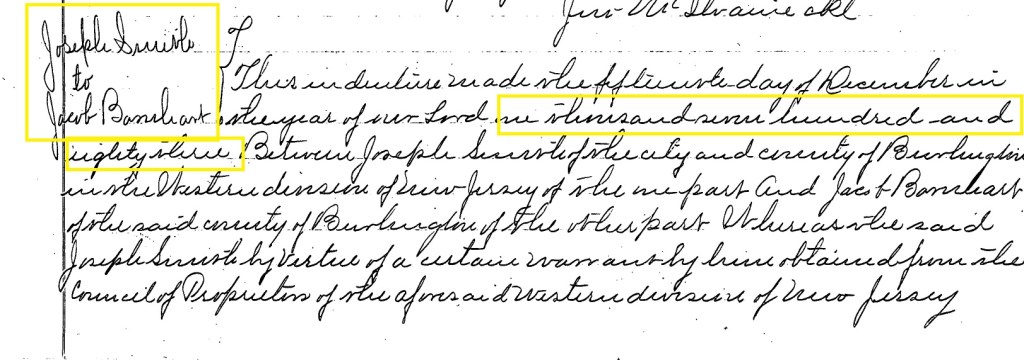 Jno McIlvaine
Joseph Smith
to
Jacob Barnhart
This indenture made the fifteenth day of December in
the year of our Lord one thousand seven hundred and
eighty three Between Joseph Smith of the city and county of Burlington
in the Western division of New Jersey of the one part And Jacob Barnhart
of the said county of Burlington of the other part Whereas the said
Joseph Smith by virtue of a certain warrant by him obtained from the
Council of Proprietors of the aforesaid Western division of New Jersey